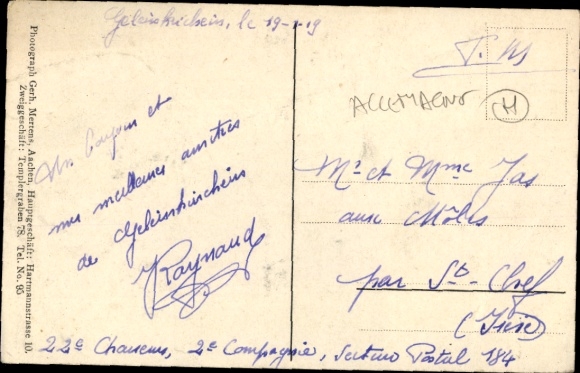 Geleinskirchein, le 19-1-19
Photograph Gerh. Mertens, Aachen, Hauptgeschäft: Hartmannstrasse 10.
Zweiggeschäft: Templergraben 78. Tel. No. 95
et
mes meilleures amitiés
de Geleinskirchein
Raynaud
T. M
ALLEMAGNE
H
Mr et Mme Jas
aux Môles
par St-Chef
(Isère)
22e Chasseurs, 2e Compagnie, Secteur Postal 184